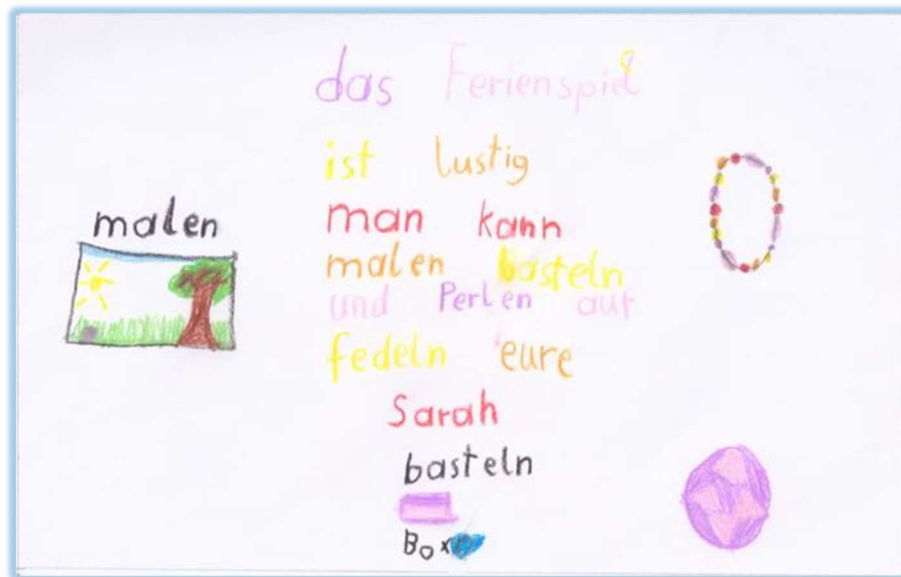 das Ferienspiel
ist lustig
man kann
malen
malen basteln
und Perlen auf
fedeln eure
Sarah
basteln
Box